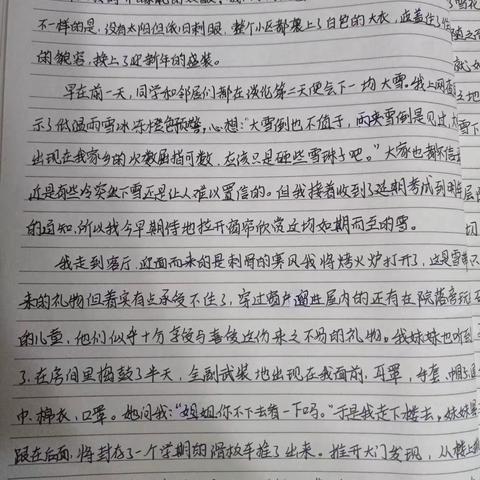 不一样的是,没有太阳但依旧刺眼,整个小区都裹上了白色的大衣,遮盖住了
的貌容,换上了迎新年的盛装。
早在前一天,同学和邻居们都在谈论第二天便会下一场大雪。我上网
示了低温雨雪冰冻橙色预警,心想:"大雪倒也不值于,雨夹雪倒是见过,
出现在我家乡的次数屈指可数,应该只是砸些雪珠子吧。"大家也都不信
近是有些冷突然下雪还是让人难以置信的。但我接着收到了延期考试到
的通知,所以我今早期待地拉开窗帘欣赏这场如期而至的雪。
我走到客厅,迎面而来的是刺骨的寒风我将烤火炉打开了,这是雪
来的礼物但着实有点承受不住了,穿过窗户涌进屋内的还有在院落旁玩
的儿童,他们似乎十分享受与喜悦这份来之不易的礼物。我妹妹也
了,在房间里捣鼓了半天,全副武装地出现在我面前,耳罩,手套,帽
巾,棉衣,口罩。她问我:"姐姐你不下去看一下吗。"于是我走下楼去,妹妹
跟在后面,将封存了一个学期的滑板车推了出来。推开大门发现,从楼上